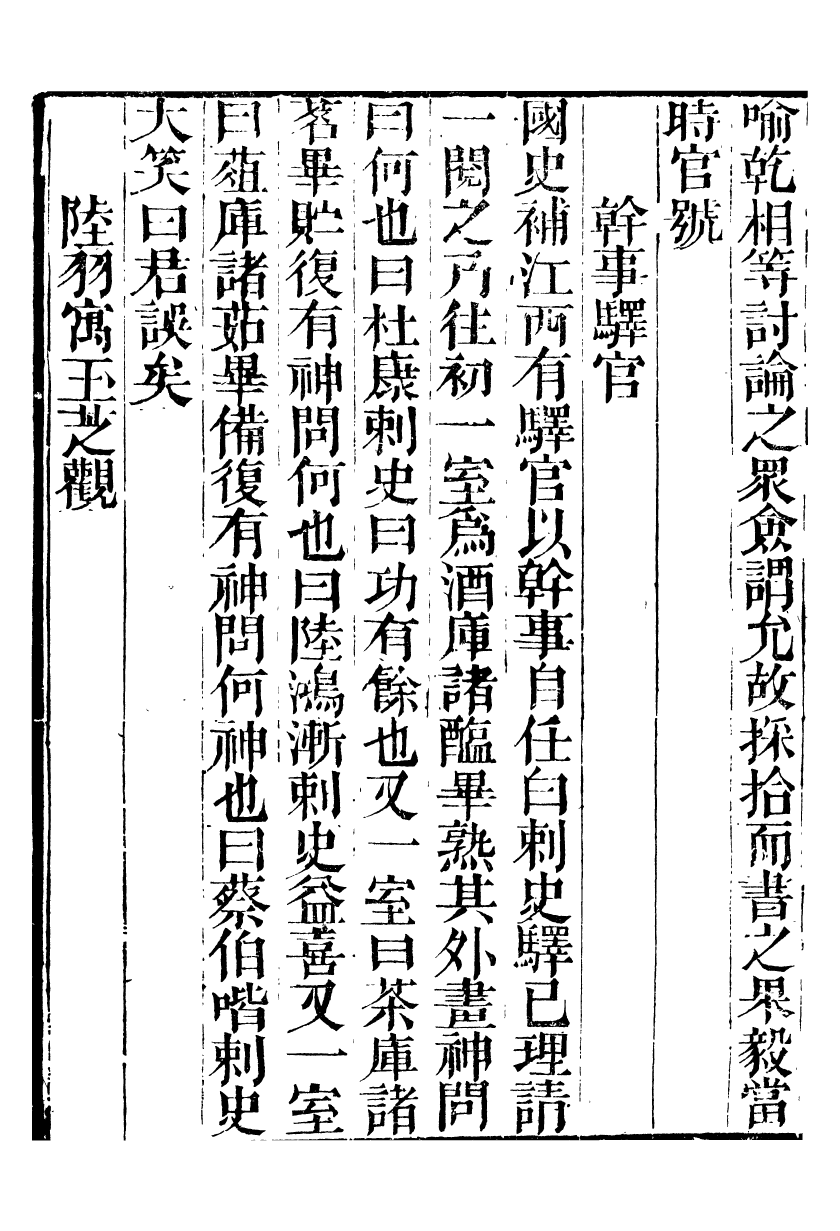 喻乾相等討論之眾僉謂允故採拾而書之果毅當
時官號
幹事驛官
國史補江西有驛官以幹事自任白刺史驛已理請
一閱之乃往初一室為酒庫諸醞畢熟其外畫神問
曰何也曰杜康刺史曰功有餘也又一室曰茶庫諸
茗畢貯復有神問何也曰陸鴻漸刺史益喜又一室
曰葅庫諸茹畢備復有神問何神也曰蔡伯喈刺史
大笑曰君誤矣
陸羽寓玉芝觀